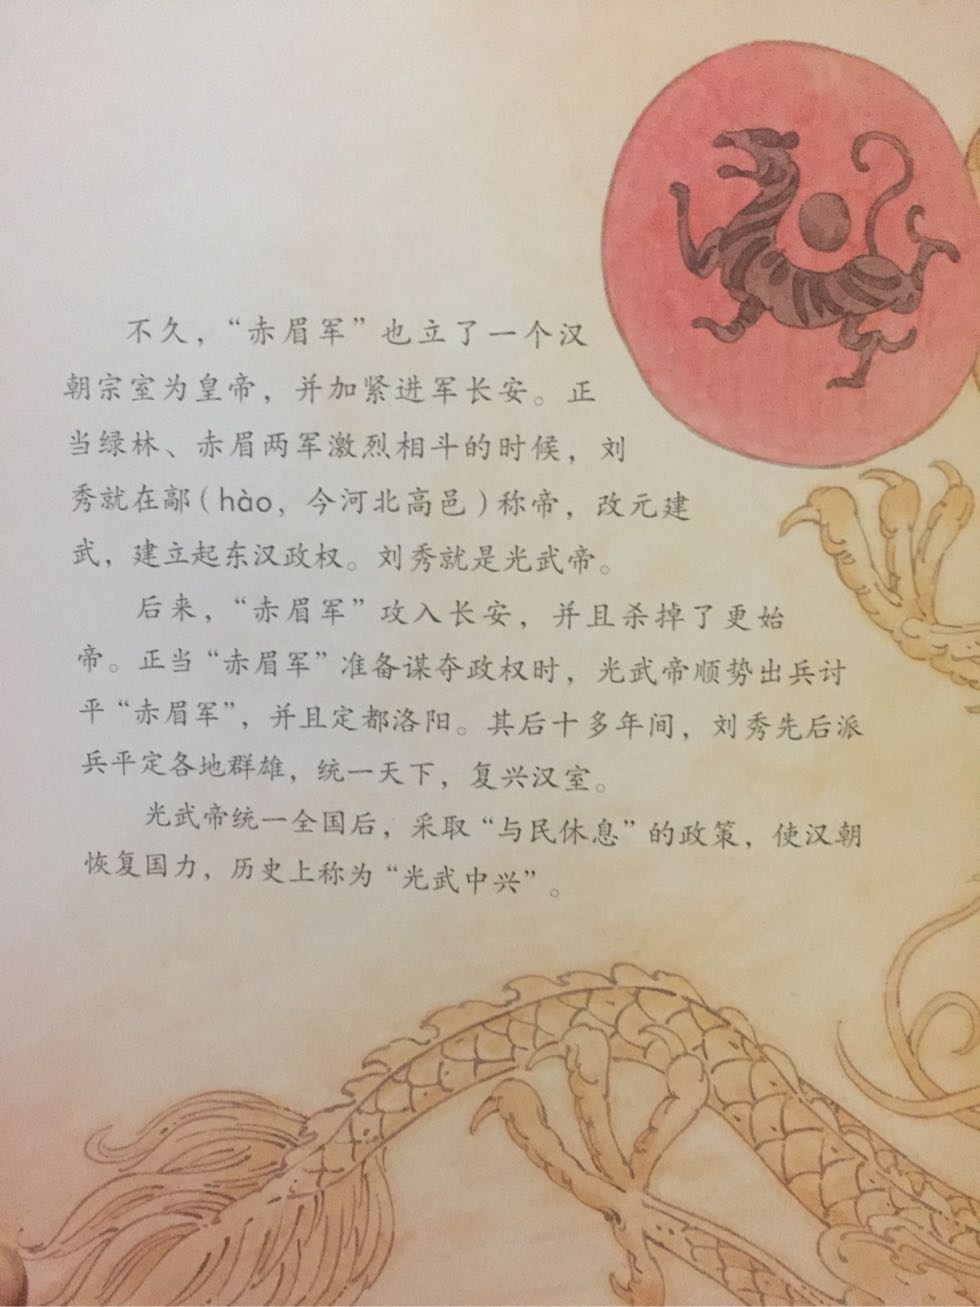 不久，“赤眉军”也立了一个汉
朝宗室为皇帝，并加紧进军长安。正
当绿林、赤眉两军激烈相斗的时候，刘
秀就在鄗（hào，今河北高邑）称帝，改元建
武，建立起东汉政权。刘秀就是光武帝。
后来，“赤眉军”攻入长安，并且杀掉了更始
帝。正当“赤眉军”准备谋夺政权时，光武帝顺势出兵讨
平“赤眉军”，并且定都洛阳。其后十多年间，刘秀先后派
兵平定各地群雄，统一天下，复兴汉室。
光武帝统一全国后，采取“与民休息”的政策，使汉朝
恢复国力，历史上称为“光武中兴”。